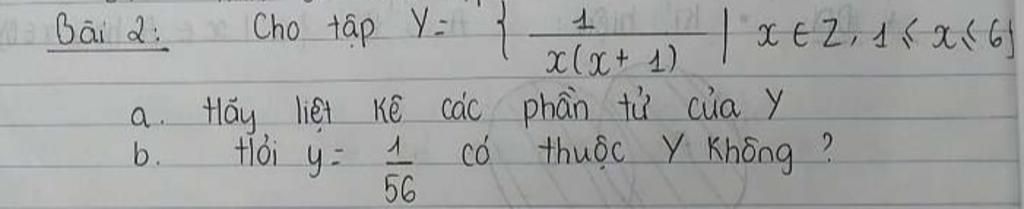 Bài 2: Cho tập Y = { 1/x(x + 1) | x ∈ Z, 1 ⩽ x ⩽ 6}
a. Hãy liệt kê các phần tử của Y
b. Hỏi y = 1/56 có thuộc Y không ?